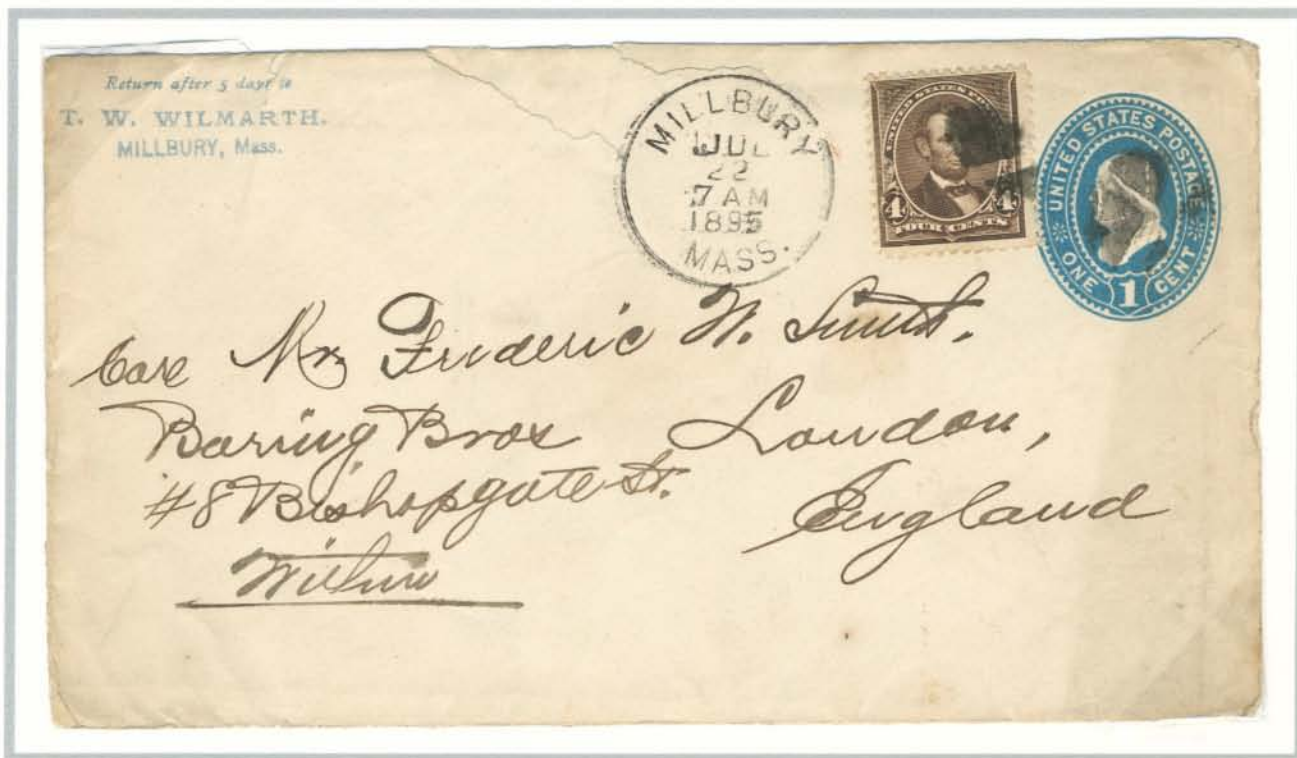 Return after 5 days to
T. W. WILMARTH.
MILLBURY, Mass.
MILLBURY
JUL
22
7 AM
1895
MASS.
UNITED STATES POS
4 4
FOUR CENTS
UNITED STATES POSTAGE
ONE 1 CENT
Mr Frederic W. Smith.
Care
Baring Bros London,
#8 Bishopgate St.
England